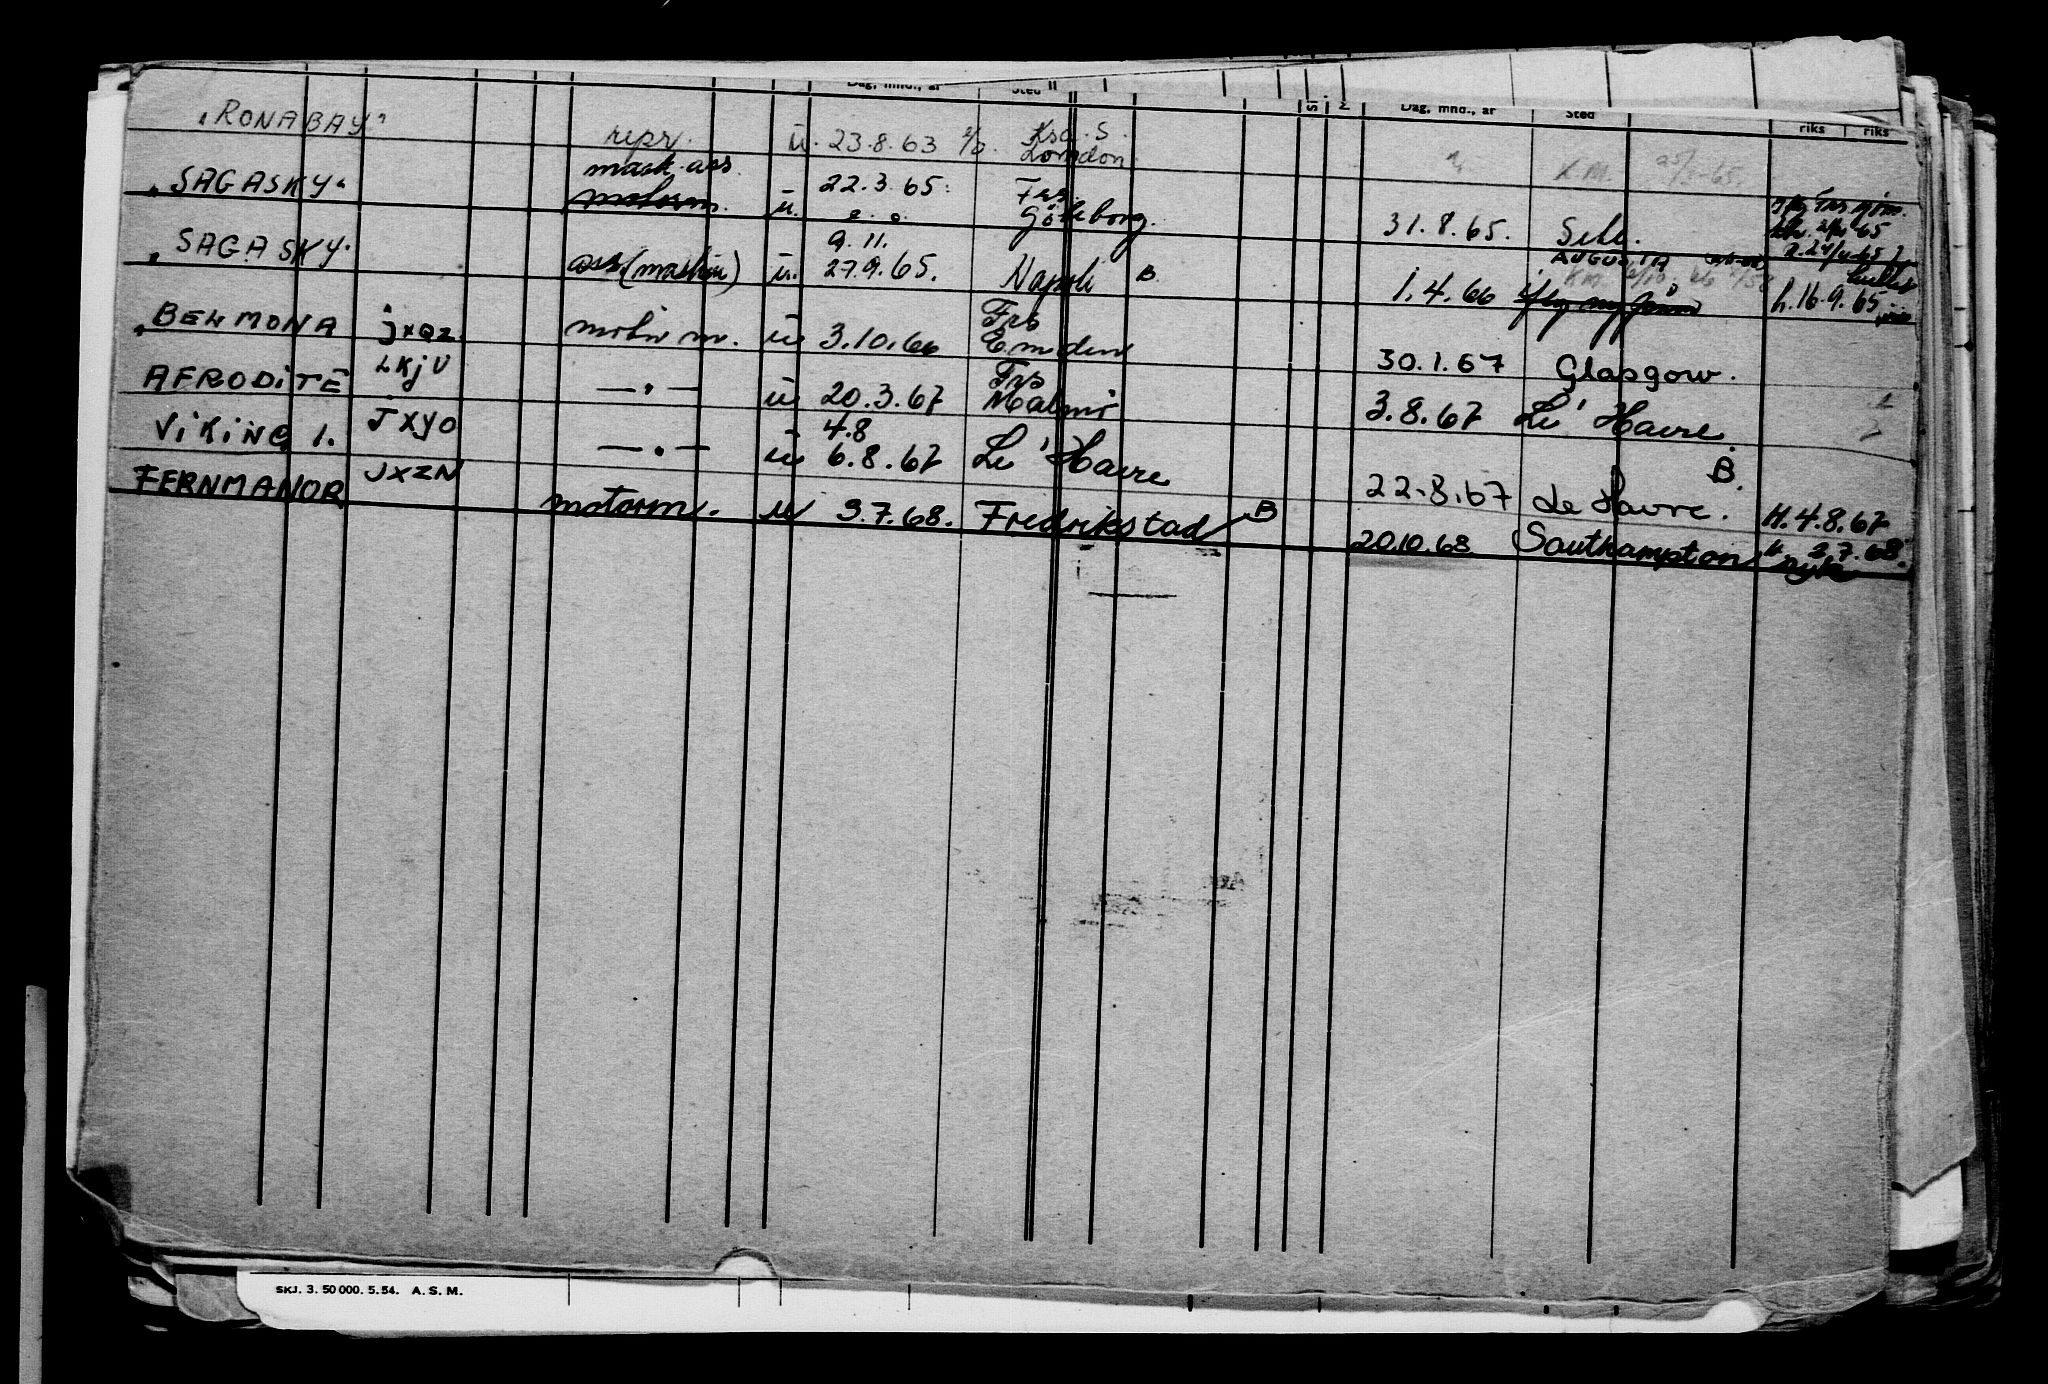 Dag, mnd., år Sted Dag, mnd., år Sted riks riks
"RONABAY" repr. u. 23.8.63 Krs. S. London
"SAGASKY" mask. ass. motorm. u. 22.3.65. Frs. Göteborg. 31.8.65.
"SAGASKY" ass. (maskin) u. 9.11. 27.9.65. Napoli B. 1.4.66 AUGUSTA h. 16.9.65
"BELMONA JXQZ motor m. u 3.10.66 Frs Emden 30.1.67 Glasgow.
AFRODITE LKJV — . — u 20.3.67 Frs Malmö 3.8.67 Le' Havre
VIKING 1. JXYO — . — u 4.8 6.8.67 Le' Havre 22.8.67 Le Havre. B. H. 4.8.67
FERNMANOR JXZN motorm. u 3.7.68. Fredrikstad B 20.10.68 Southampton 3.7.68.
SKJ. 3. 50 000. 5. 54. A. S. M.